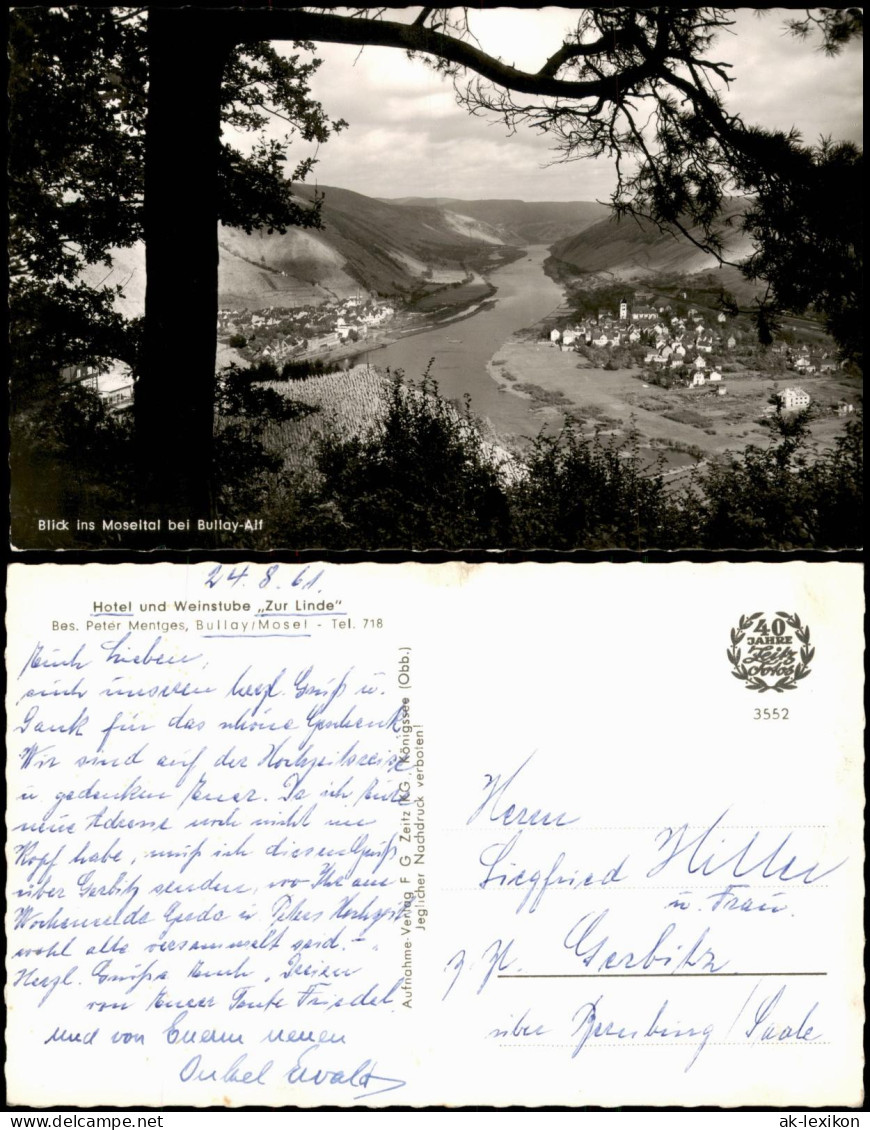 Blick ins Moseltal bei Bullay-Alf
24.8.61.
Hotel und Weinstube „Zur Linde"
Bes. Peter Mentges, Bullay/Mosel - Tel. 718
Euch Lieben,
auch unseren herzl. Gruß u.
Dank für das schöne Geschenk.
Wir sind auf der Hochzeitsreise
u. gedenken Eurer. Da ich Eure
neue Adresse noch nicht im
Kopf habe, muß ich diesen Gruß
über Gerbitz senden, wo Ihr am
Wochenende Gerda u. Peters Hochzeit
wohl alle versammelt seid. -
Herzl. Grüße Euch Dreien
von Eurer Tante Friedel
und von Euerm neuen
Onkel Ewald
Aufnahme-Verlag F G Zeitz KG, Königssee (Obb.)
Jeglicher Nachdruck verboten!
40
JAHRE
Zeitz
Fotos
3552
Herrn
Siegfried Hiller
u. Frau.
z. Zt. Gerbitz
über Bernburg/Saale
ak-lexikon